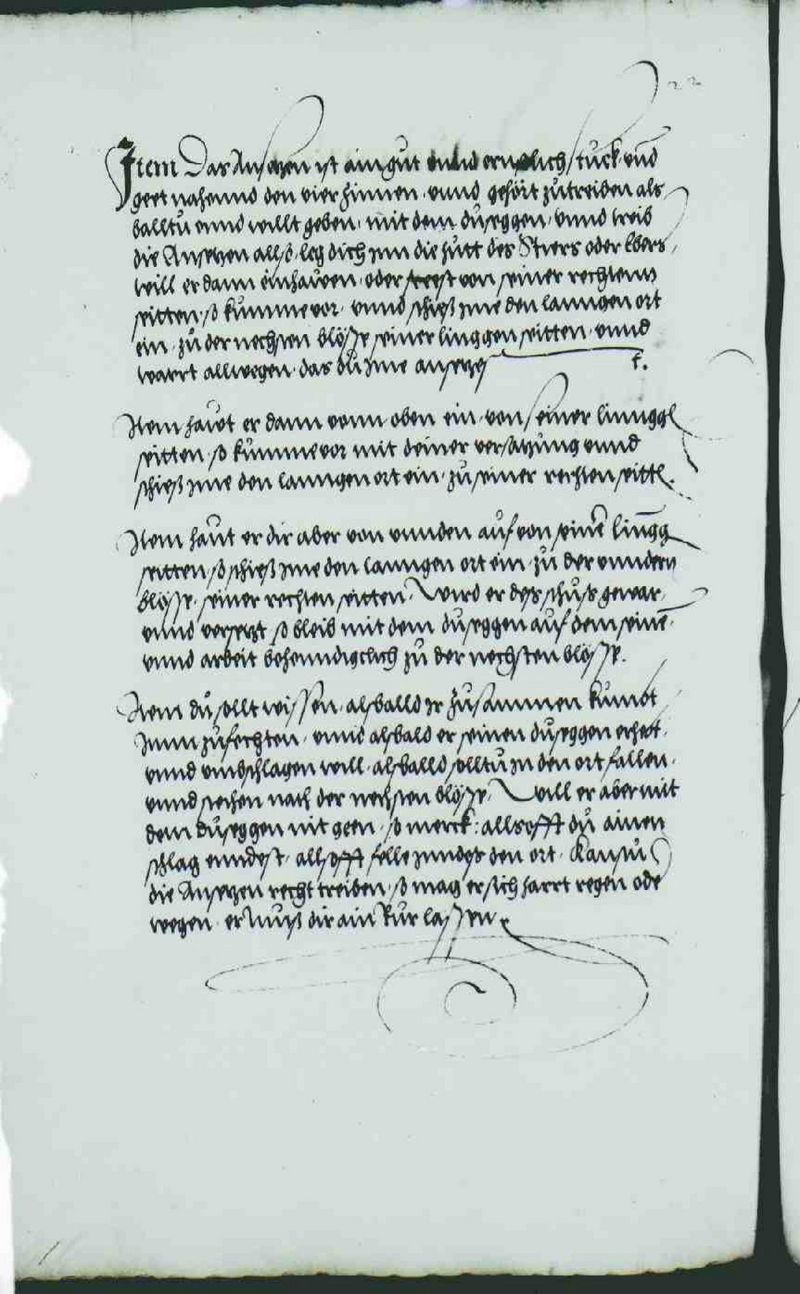 22
Item Das Ansetzen ist ain gut vnnd ernstlich stuck vnd
geet nahennd den vier hinnen vnnd gehört zutreiben als
balltu ennd willt geben mit dem duseggen vnnd treib
die Ansetzen allso leg dich jnn die hutt des Stiers oder Ebers
will er dann einhauwen oder von seiner rechtenn
seitten so kumme vor vnnd schieß jme den lanngen ort
ein zu der nechsten blösse seiner linggen seitten vnnd
wartt allwegen das du jme ansetzest
Item hawt er dann vonn oben ein von seiner linngg
seitten so kumme vor mit deiner versatzung vnnd
schieß jme den lanngen ort ein zu seiner rechten seitt.
Item haut er dir aber von vnnden auf von seine lingg
seitten so schieß jme den lanngen ort ein zu der vnndern
blösse seiner rechten seitten Wird er des schuß gewar
vnnd versetzt so bleib mit dem duseggen auf dem seine
vnnd arbeit behenndigclich zu der nechsten blösse.
Item du sollt wissen alsballd Ir zusammen kumbt
jnn zufechten vnnd alsbald er seinen duseggen erhebt
vnnd vmbschlagen will alsballd solltu In den ort fallen
vnnd stechen nach der nechsten blösse. Will er aber mit
dem duseggen nit geen so merck: alls offt du ainen
schlag enndest alls offt felle jnndes den ort Kanstu
die Ansetzen recht treiben so mag er sich hartt regen ode
wegen er muß dir ain kur lassen